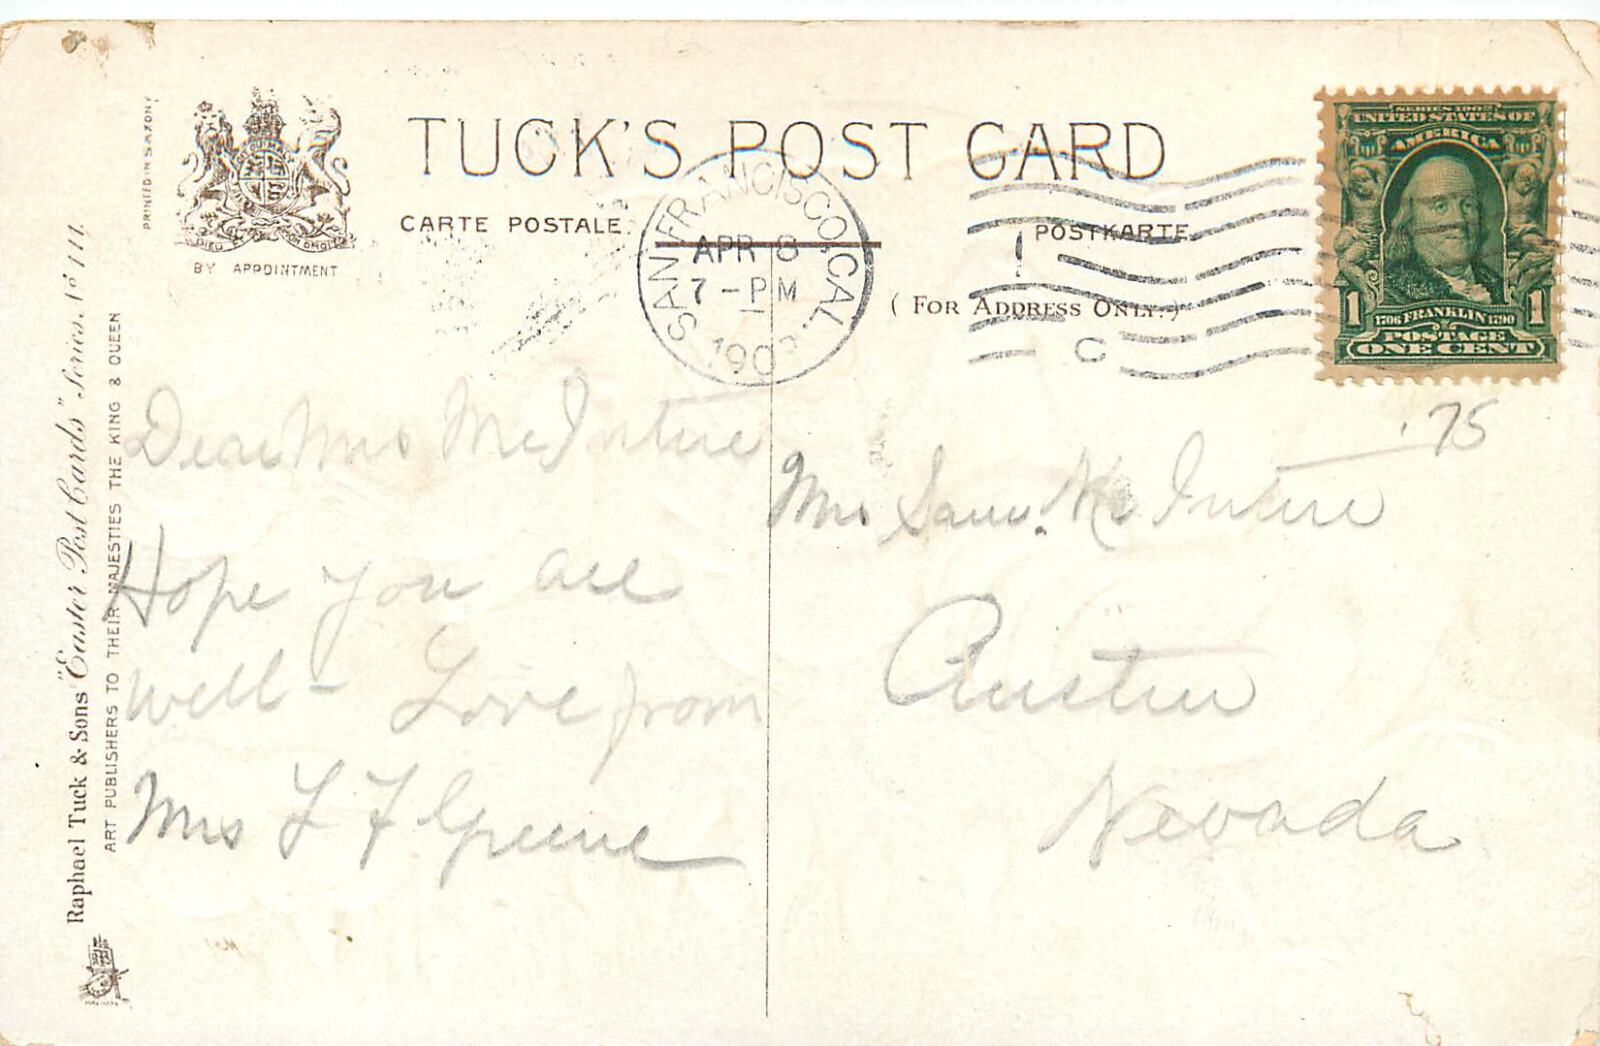 PRINTED IN SAXONY
BY APPOINTMENT
TUCK'S POST CARD
CARTE POSTALE.
POSTKARTE.
( FOR ADDRESS ONLY.)
SAN FRANCISCO, CAL.
APR 8
7 - PM
190
1
C
SERIES 1902
UNITED STATES OF
AMERICA
1 1
1706 FRANKLIN 1790
POSTAGE
ONE CENT
.75
Dear Mrs McIntire
Hope you are
well - Love from
Mrs L F Greene
Mrs Sam. McIntire
Austin
Nevada
Raphael Tuck & Sons' "Easter Post Cards" Series No 111.
ART PUBLISHERS TO THEIR MAJESTIES THE KING & QUEEN